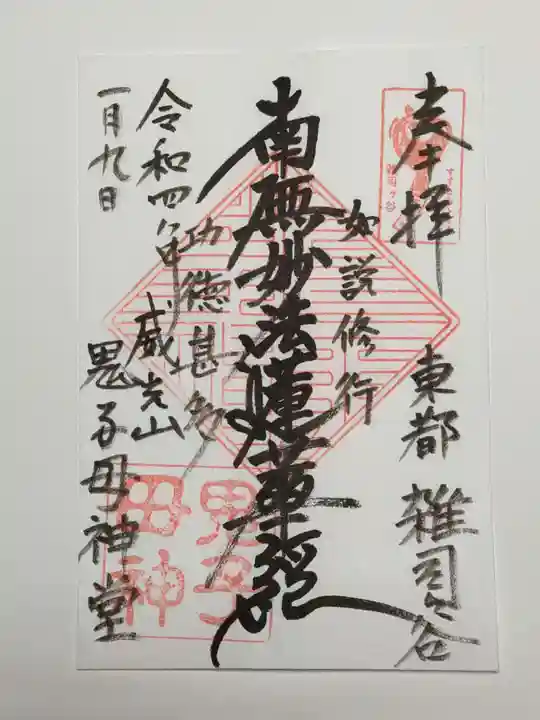 奉拝
東都 雑司ヶ谷
如説修行
南無妙法蓮華経
功徳甚多
威光山
鬼子母神堂
令和四年
一月九日
鬼子
母神
雑司ヶ谷